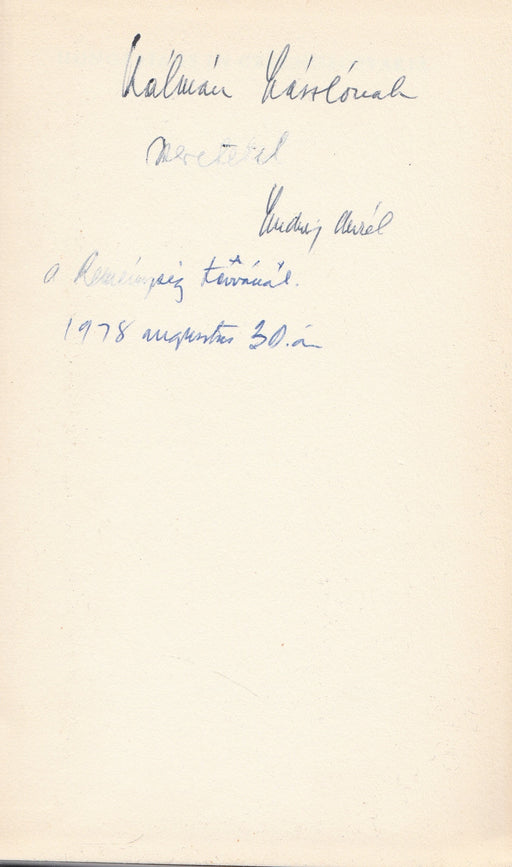 Kálmán Lászlónak
szeretettel
Endre Aurél
a Reménység távánál.
1978 augusztus 30.-án